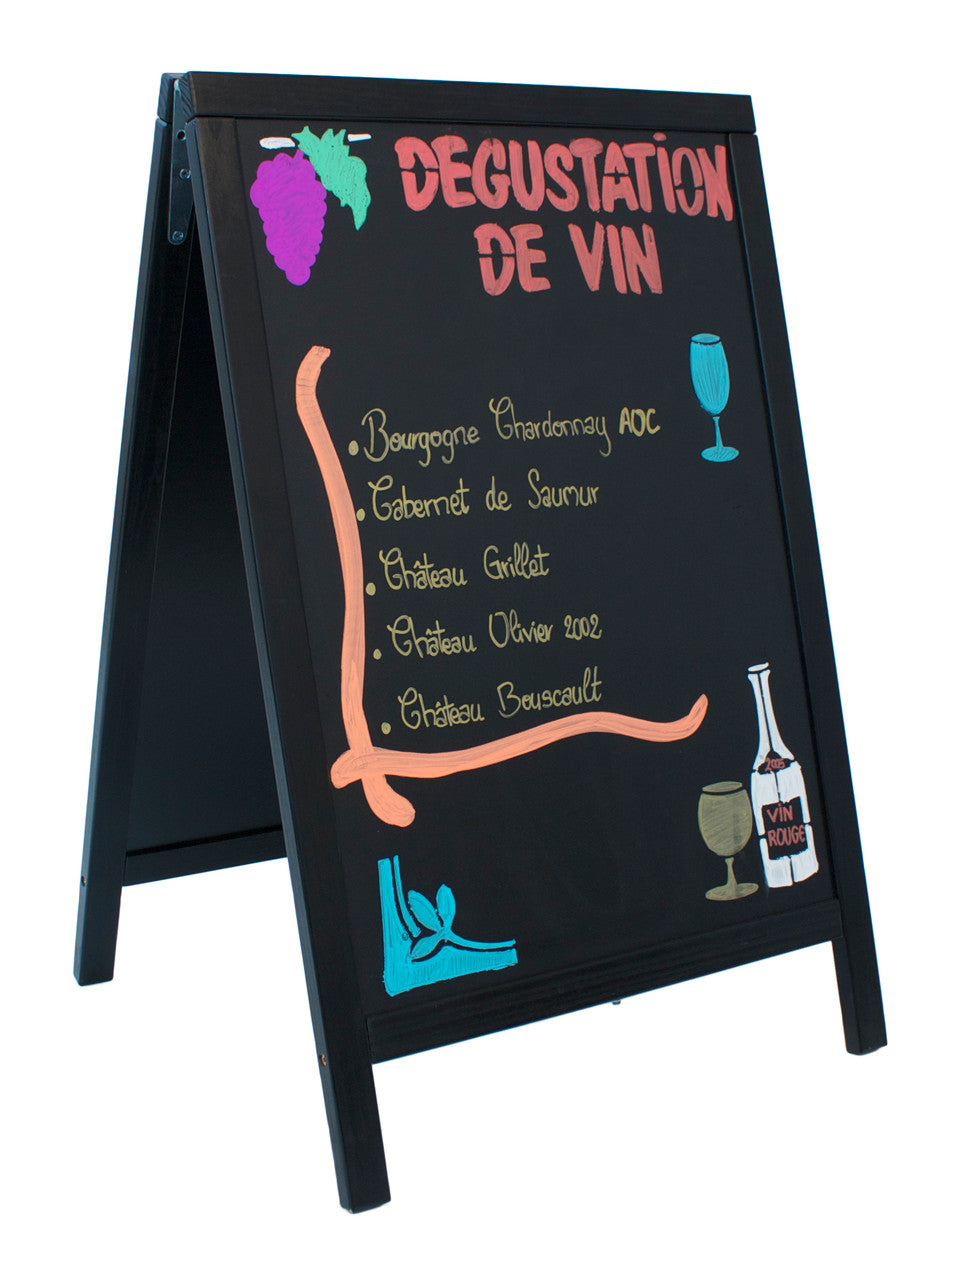 DEGUSTATION
DE VIN
• Bourgogne Chardonnay AOC
• Cabernet de Saumur
• Château Grillet
• Château Olivier 2002
• Château Bouscault
2005
VIN
ROUGE